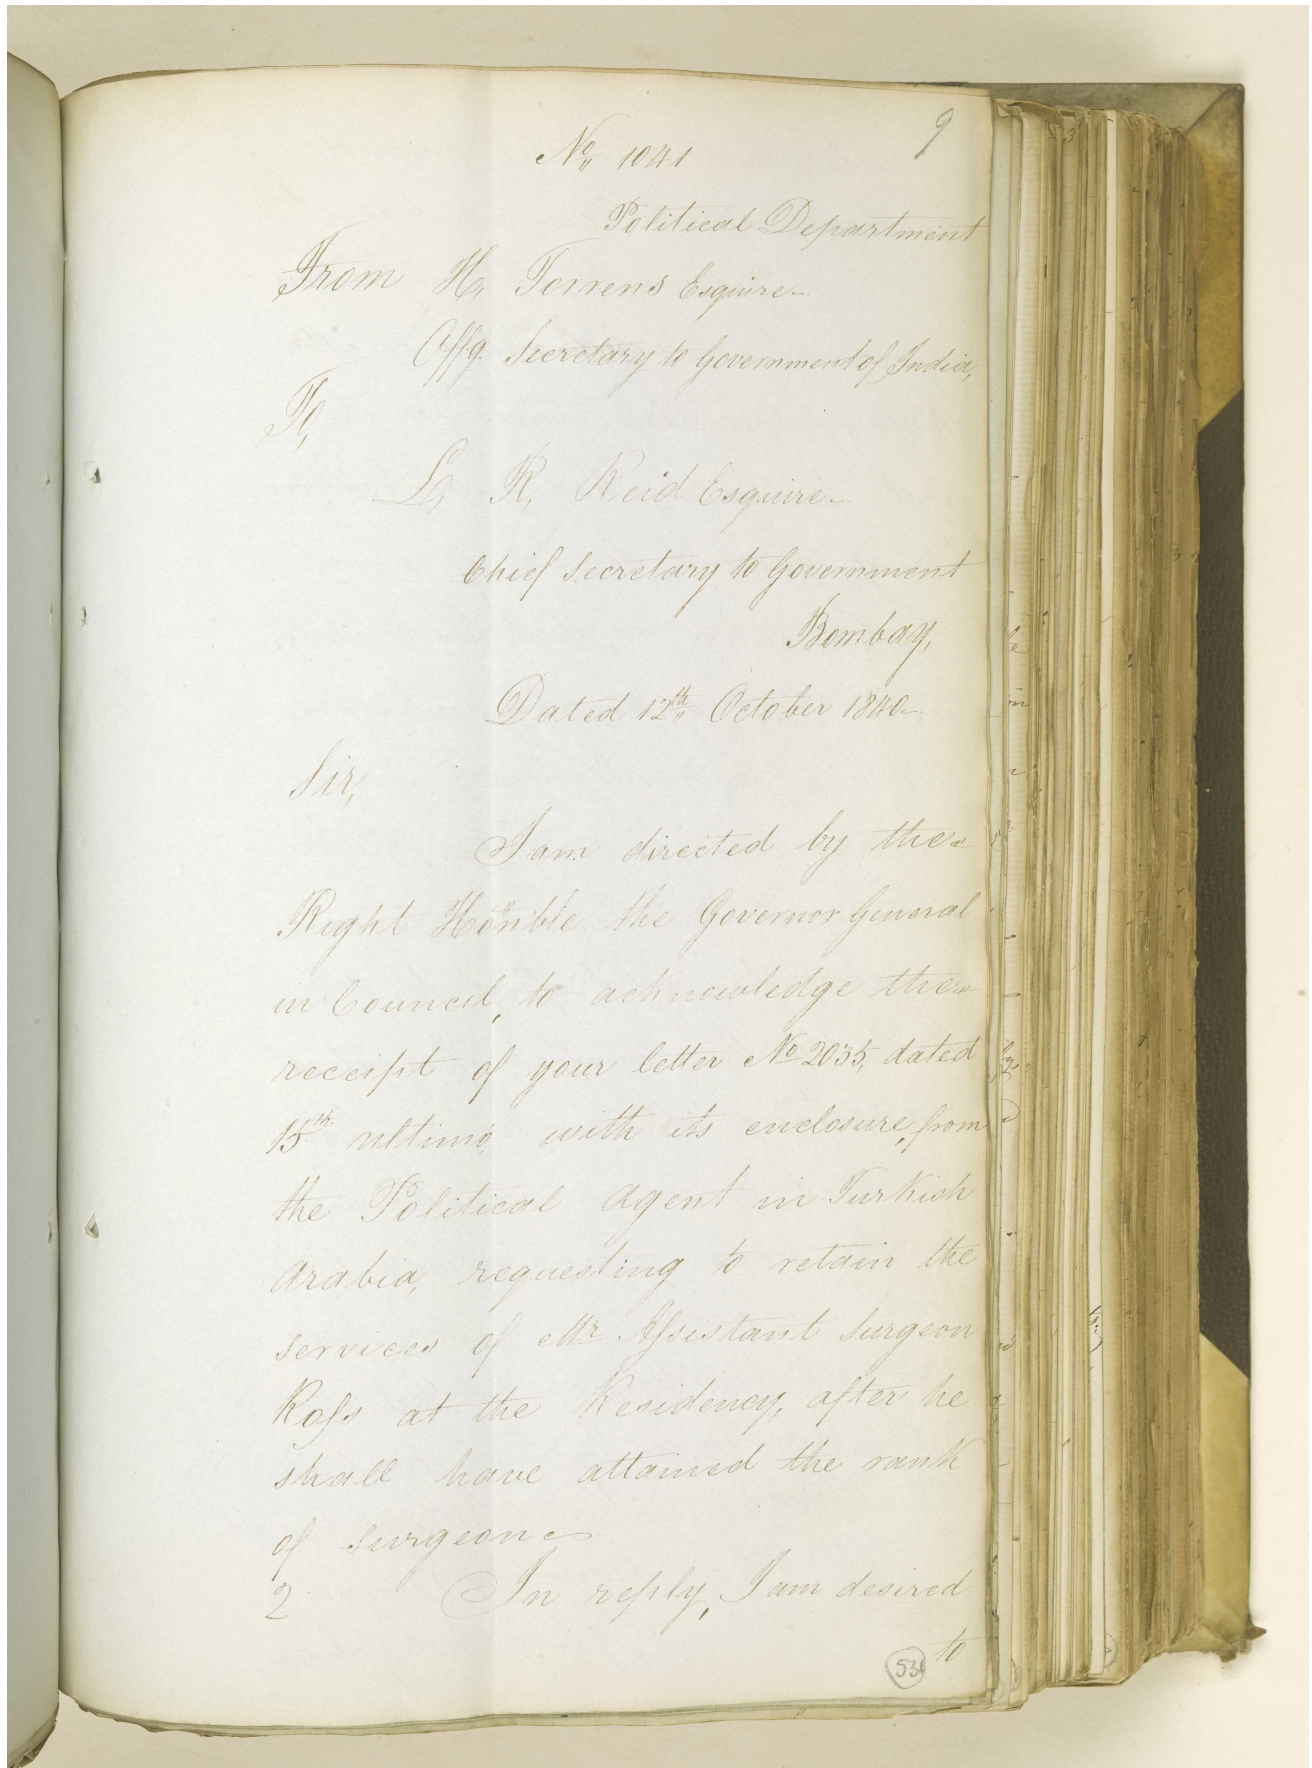 9
No 1041
Political Department
From H, Torrens Esquire
Offg. Secretary to Government of India,
To,
L, R, Reid Esquire
Chief Secretary to Government
Bombay,
Dated 12th October 1840
Sir,
I am directed by the
Right Honble the Governor General
in Council, to acknowledge the
receipt of your letter No 2035, dated
15th ultimo, with its enclosure, from
the Political Agent in Turkish
Arabia, requesting to retain the
services of Mr Assistant Surgeon
Ross at the Residency, after he
shall have attained the rank
of Surgeon
2 In reply, I am desired
to
53